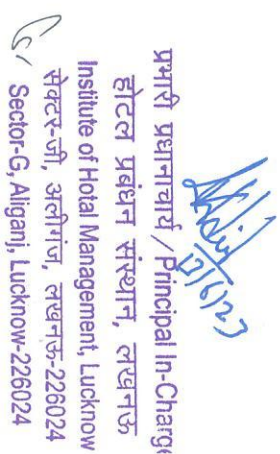 17/6/23
प्रभारी प्रधानाचार्य / Principal In-Charge
होटल प्रबंधन संस्थान, लखनऊ
Institute of Hotal Management, Lucknow
सेक्टर-जी, अलीगंज, लखनऊ-226024
Sector-G, Aliganj, Lucknow-226024